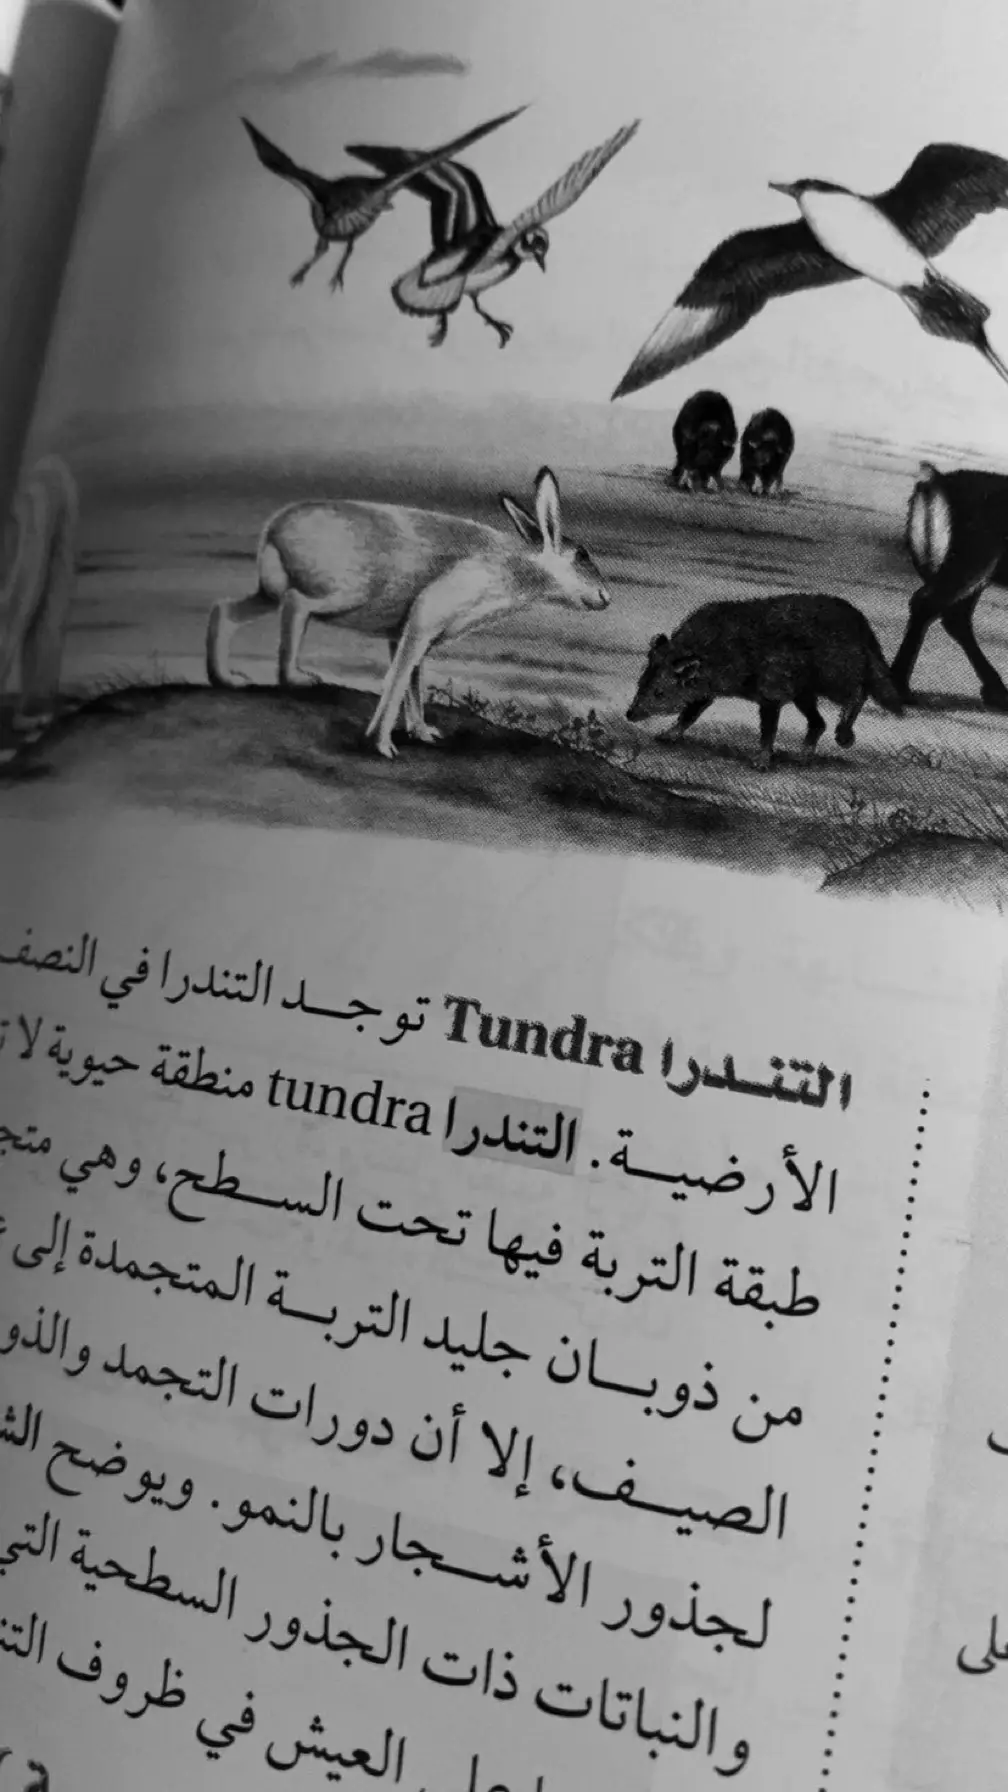 التندرا Tundra توجد التندرا في النصف
الأرضية. التندرا tundra منطقة حيوية لا
طبقة التربة فيها تحت السطح، وهي
من ذوبان جليد التربة المتجمدة إلى
الصيف، إلا أن دورات التجمد
لجذور الأشجار بالنمو. ويوضح
والنباتات ذات الجذور السطحية التي
العيش في ظروف